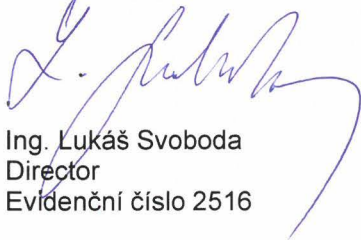 Ing. Lukáš Svoboda
Director
Evidenční číslo 2516